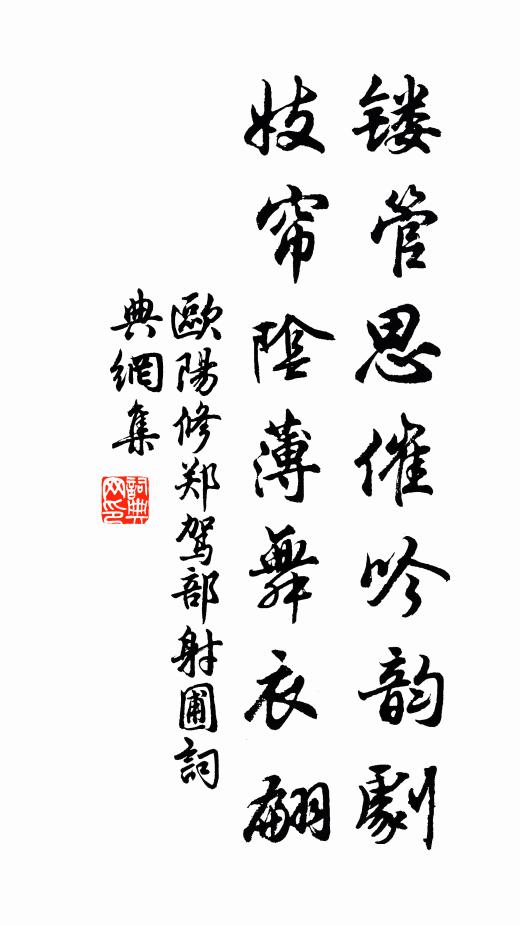 镂管思催吟韵劇
妓帘陰薄舞衣翩
歐陽修郑駕部射圃詞
典網集
詞典网印